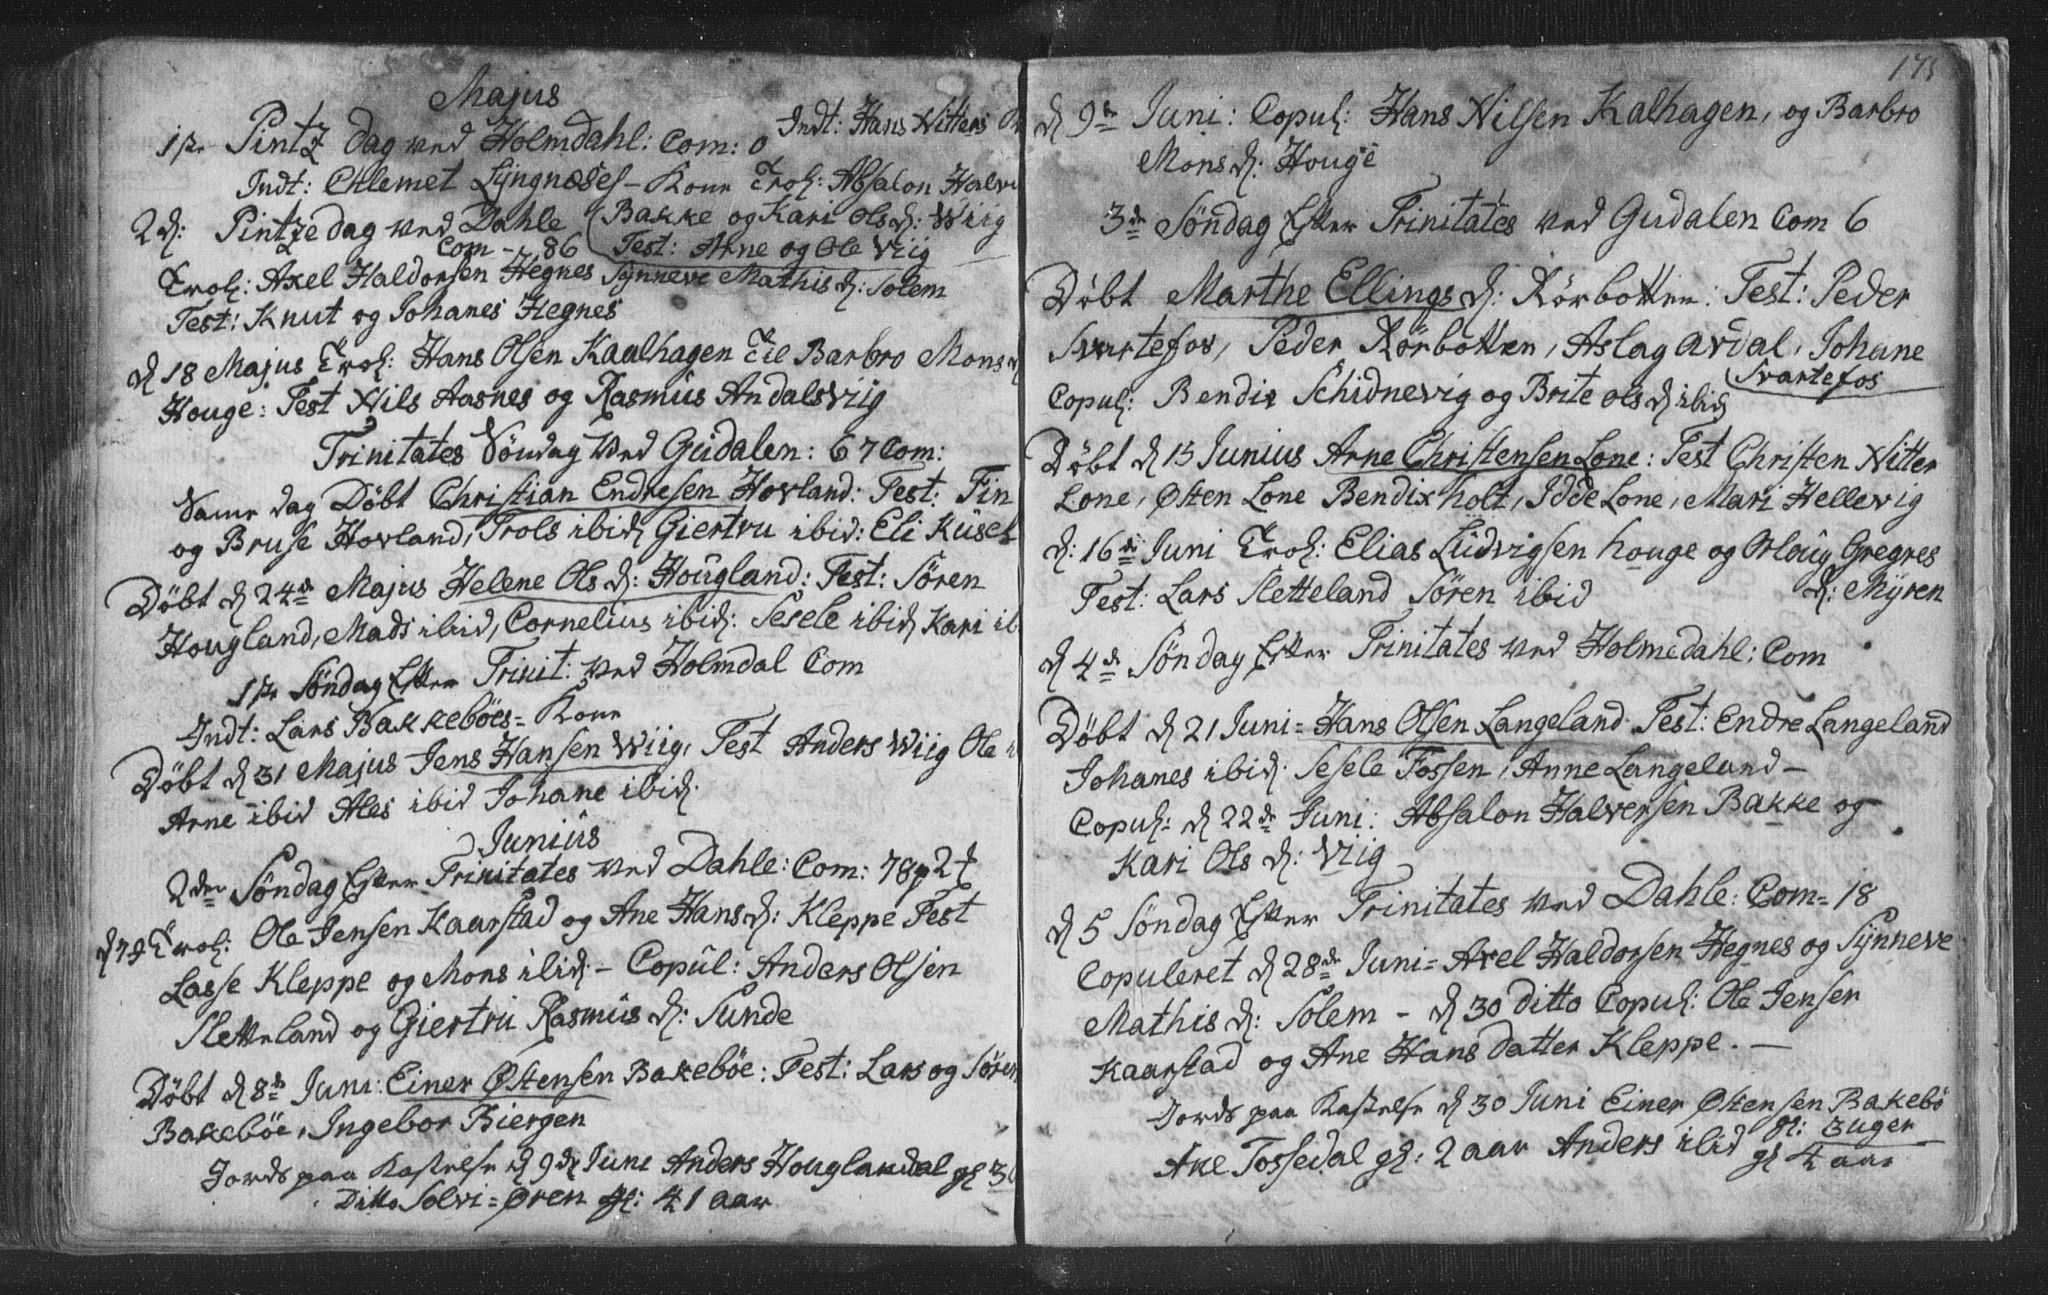 Majus
1ste Pintz dag ved Holmdahl: Com: 0 Indt: Hans Nitters
Indt: Clemet Lÿngnoses - Kone Trol: Absalon Halv
2d: Pintze dag ved Dahle Bakke og Kari Ols d: Wiig
Com - 86 Test: Arne og Ole Viig
Trol: Axel Haldorsen Hegnes Sÿnneve Mathis d: Solem
Test: Knut og Johanes Hegnes
d 18 Majus Trol: Hans Olsen Kaalhagen Til Barbro Mons d
Houge: Test Nils Aasnes og Rasmus Andalsviig
Trinitates Søndag ved Gudalen: 67 Com:
Same dag Døbt Christian Endresen Hovland: Test: Fin
og Bruse Hovland, Trols ibid Giertru ibid: Eli Kusel
Døbt d 24de Majus Helene Ols d: Hougland: Test: Søren
Hougland, Mads ibid, Cornelius ibid: Sesele ibid Kari ib
1ste Søndag Efter Trinit: ved Holmdal Com
Indt: Lars Bakkebøes = Kone
Døbt d 31 Majus Jens Hansen Wiig, Test Anders Wiig Ole
Arne ibid Ales ibid Johane ibid.
Junius
2den Søndag Efter Trinitates ved Dahle: Com: 78
Trol: Ole Jensen Kaarstad og Ane Hans d: Kleppe Test
Lasse Kleppe og Mons ibid - Copul: Anders Olsen
Sletteland og Giertru Rasmus d: Sunde
Døbt d 8de Juni: Einer Østensen Bakebøe: Test: Lars og Søren
Bakebøe, Ingebor Biergen
Jords paa Kastelse d 9de Juni Anders Houglandal gl 3
Ditto Solvi = Øren gl: 41 aar
175
d 9de Juni: Copul: Hans Nilsen Kalhagen, og Barbro
Mons d: Houge
3de Søndag Efter Trinitates ved Gudalen Com 6
Døbt Marthe Ellings d: Rørbotten: Test: Peder
Svartefos, Peder Rørbotten, Aslag Avdal, Johane
Svartefos
Copul: Bendix Schidnevig og Brite Ols d ibid
Døbt d 15 Junius Arne Christensen Lone: Test Christen Nitter
Lone, Østen Lone Bendix holt, Idde Lone, Mari Hellevig
d: 16de Juni Trol: Elias Ludvigsen houge og Oloug Gregres
Test: Lars Sletteland Søren ibid d: Mÿren
d 4de Søndag Efter Trinitates ved Holmedahl: Com
Døbt d 21 Juni = Hans Olsen Langeland Test: Endre Langeland
Johanes ibid. Sesele Fossen, Anne Langeland -
Copul: d 22de Juni: Absalon Halversen Bakke og
Kari Ols d: Viig
d 5 Søndag Efter Trinitates ved Dahle: Com = 18
Copuleret d 28de Juni = Axel Haldorsen Hegnes og Sÿnneve
Mathis d: Solem - d 30 ditto Copul: Ole Jensen
Kaarstad og Ane Hans datter Kleppe. -
Jords paa Kastelse d 30 Juni Einer Østensen Bakebø
gl: 3 uger
Ane Tossedal gl: 2 aar Anders ibid gl 4 aar